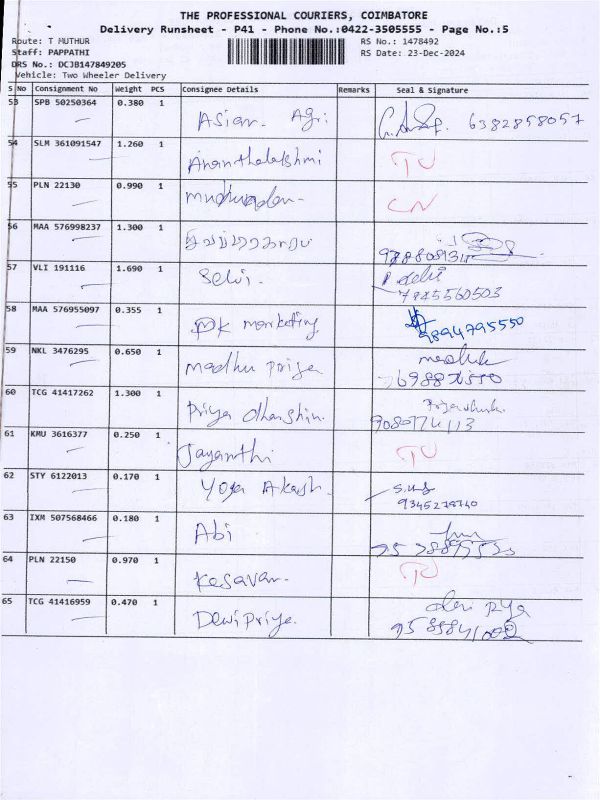 THE PROFESSIONAL COURIERS, COIMBATORE
Delivery Runsheet - P41 - Phone No.:0422-3505555 - Page No.:5
Route: T MUTHUR
RS No.: 1478492
Staff: PAPPATHI
RS Date: 23-Dec-2024
DRS No.: DCJB147849205
Vehicle: Two Wheeler Delivery
S No Consignment No Weight PCS Consignee Details Remarks Seal & Signature
53 SPB 50250364 0.380 1 Asian Agri 6382858057
54 SLM 361091547 1.260 1 Ananthalakshmi TU
55 PLN 22130 0.990 1 CN
56 MAA 576998237 1.300 1
57 VLI 191116 1.690 1 Selvi. 7845560503
58 MAA 576955097 0.355 1 PK marketing 9894795550
59 NKL 3476295 0.650 1 madhu priya
60 TCG 41417262 1.300 1 Priya dharshin.
61 KMU 3616377 0.250 1 Jayanthi TU
62 STY 6122013 0.170 1 Yoga Akash 9345278740
63 IXM 507568466 0.180 1 Abi
64 PLN 22150 0.970 1 Kesavan. TU
65 TCG 41416959 0.470 1 DeviPriya.